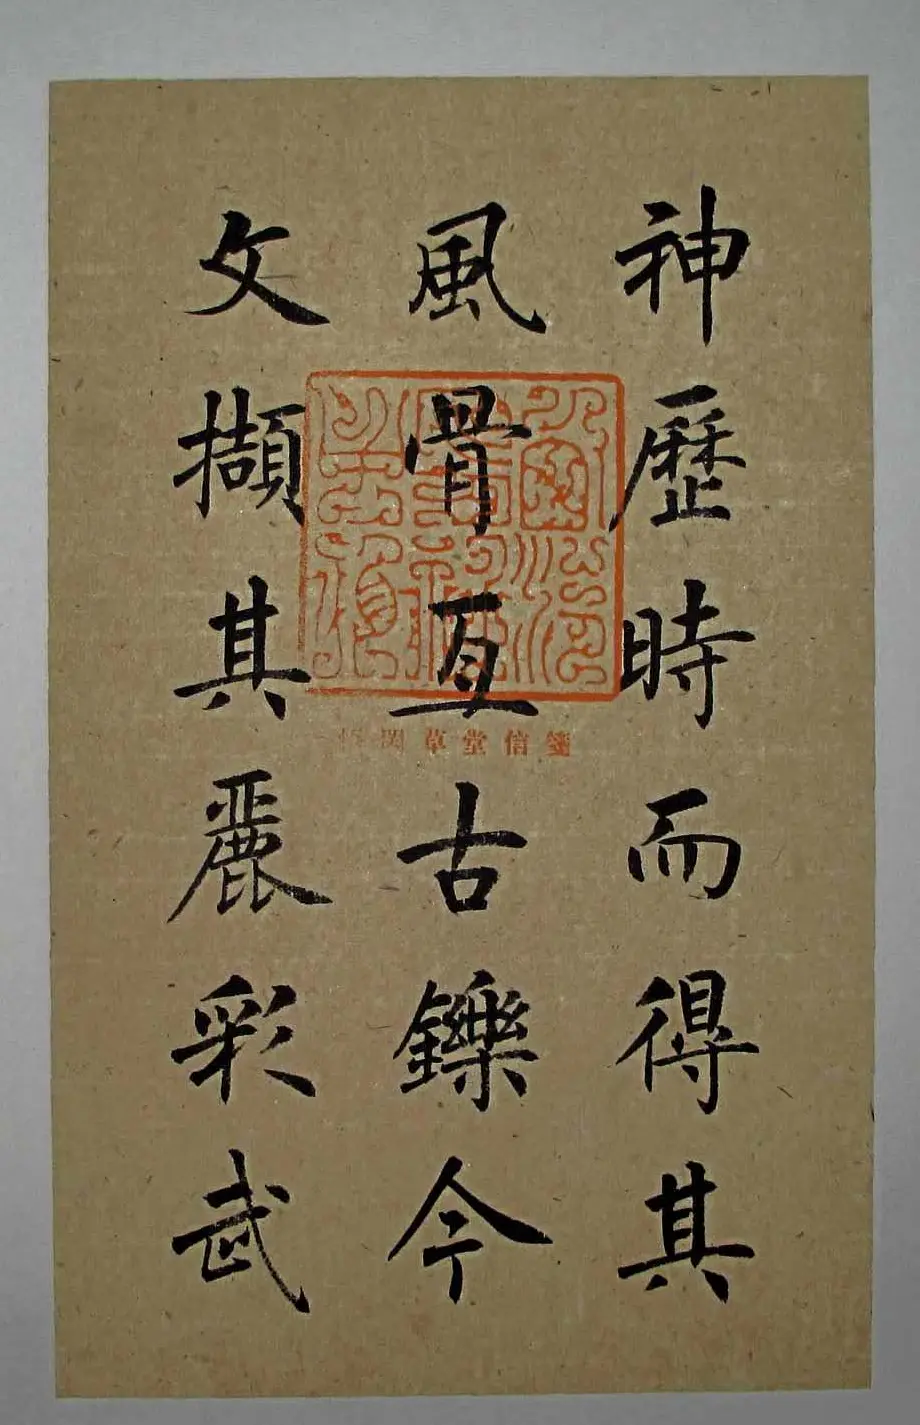 神歷時而得其
風骨亙古鑠今
文擷其麗彩武
箋信堂草閣